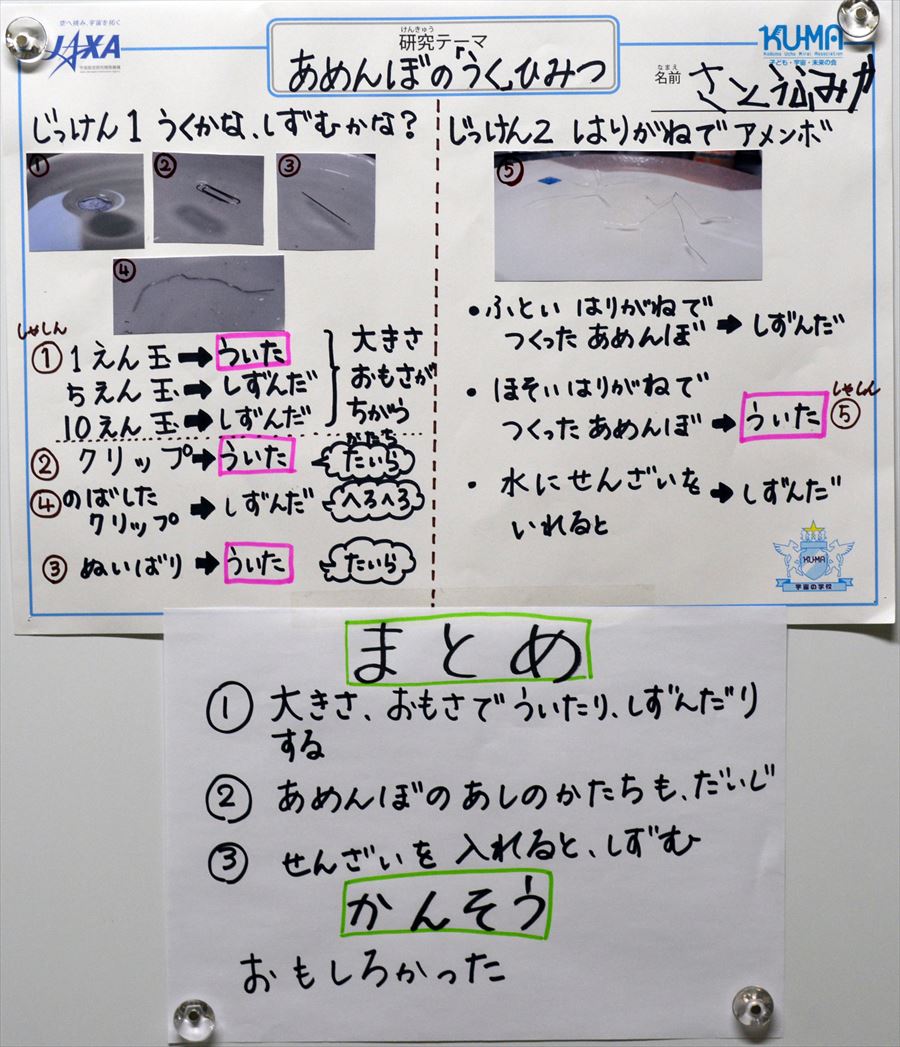 空へ挑み、宇宙を拓く
JAXA
けんきゅう
研究テーマ
あめんぼの「うく」ひみつ
KUMA
Kodomo Uchu Mirai Association
子ども・宇宙・未来の会
なまえ
名前
さとうふみか
じっけん1 うくかな、しずむかな?
①
②
③
④
しゃしん
① 1えん玉➡ういた
5えん玉➡しずんだ
10えん玉➡しずんだ
大きさ
おもさが
ちがう
② クリップ➡ういた
かたち
たいら
④ のばした
クリップ➡しずんだ
へろへろ
③ ぬいばり➡ういた
たいら
じっけん2 はりがねでアメンボ
⑤
・ふとい はりがねで
つくった あめんぼ➡しずんだ
・ほそい はりがねで
つくった あめんぼ➡ういた
しゃしん
⑤
・水にせんざいを
いれると➡しずんだ
KUMA
宇宙の学校
まとめ
① 大きさ、おもさでういたり、しずんだり
する
② あめんぼのあしのかたちも、だいじ
③ せんざいを入れると、しずむ
かんそう
おもしろかった